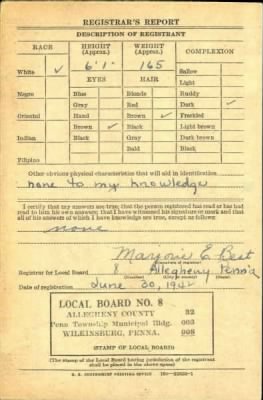 REGISTRAR'S REPORT
DESCRIPTION OF REGISTRANT
RACE HEIGHT (Approx.) WEIGHT (Approx.) COMPLEXION
6' 1" 165
White ✓ Sallow
EYES HAIR Light
Negro Blue Blonde Ruddy
Gray Red Dark ✓
Oriental Hazel Brown ✓ Freckled
Brown ✓ Black Light brown
Indian Black Gray Dark brown
Bald Black
Filipino
Other obvious physical characteristics that will aid in identification
none to my knowledge
I certify that my answers are true; that the person registered has read or has had
read to him his own answers; that I have witnessed his signature or mark and that
all of his answers of which I have knowledge are true, except as follows:
none
Marjorie E. Best
(Signature of registrar)
Registrar for Local Board 8 Allegheny Penn'a
(Number) (City or county) (State)
Date of registration June 30, 1942
LOCAL BOARD NO. 8
ALLEGHENY COUNTY 32
Penn Township Municipal Bldg. 003
WILKINSBURG, PENNA. 008
(STAMP OF LOCAL BOARD)
(The stamp of the Local Board having jurisdiction of the registrant
shall be placed in the above space)
U. S. GOVERNMENT PRINTING OFFICE